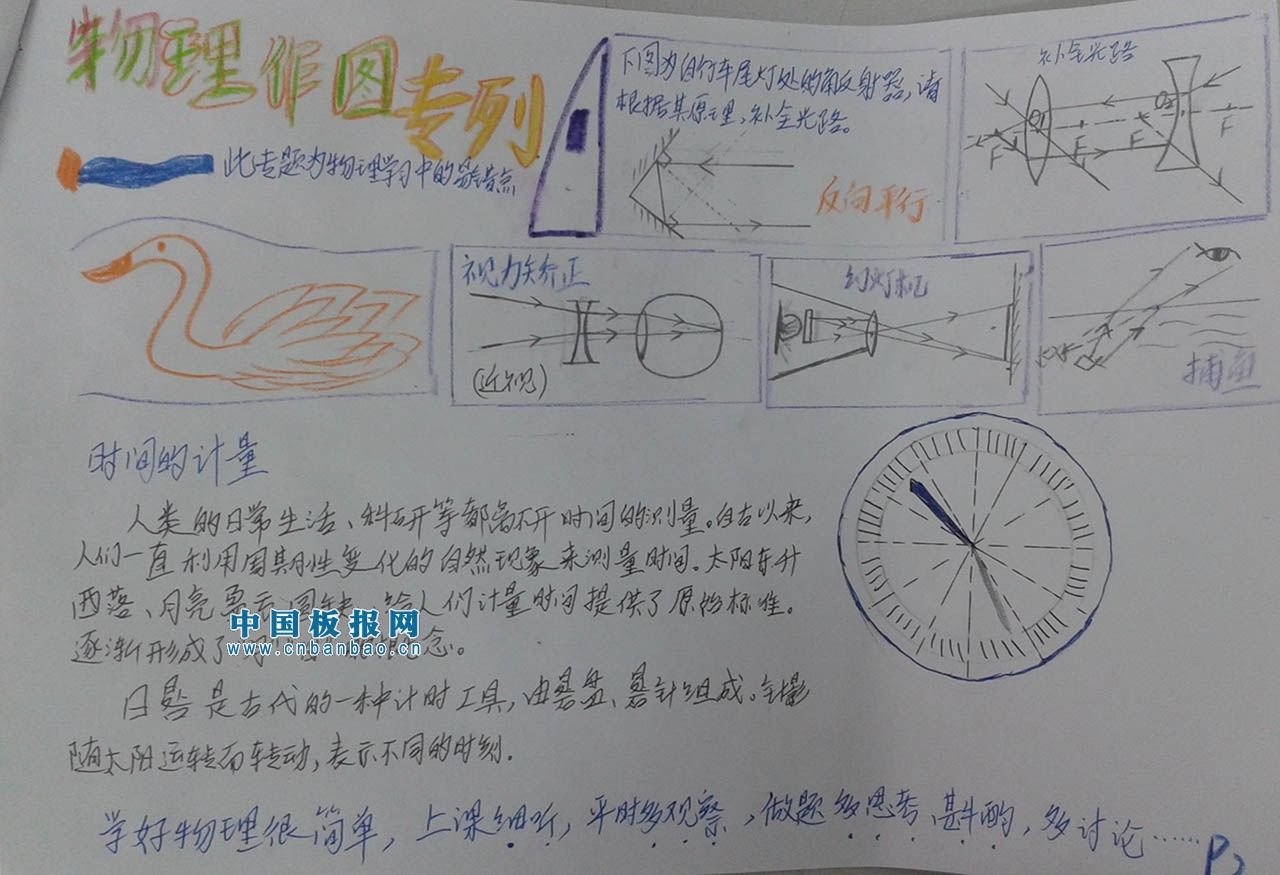 物理作图专列
此专题为物理学习中的易错点
下图为自行车尾灯处的角反射器,请
根据其原理,补全光路。
反向平行
补全光路
O1
O2
F
F
F
F
视力矫正
(近视)
幻灯机
捕鱼
时间的计量
人类的日常生活、科研等都离不开时间的识量。自古以来,
人们一直利用周期性变化的自然现象来测量时间。太阳东升
西落、月亮 给人们计量时间提供了原始标准。
逐渐形成了 念。
中国板报网
www.cnbanbao.cn
日晷是古代的一种计时工具,由晷盘、晷针组成。针影
随太阳运转而转动,表示不同的时刻.
学好物理很简单,上课细听,平时多观察,做题多思考、斟酌,多讨论……
P2